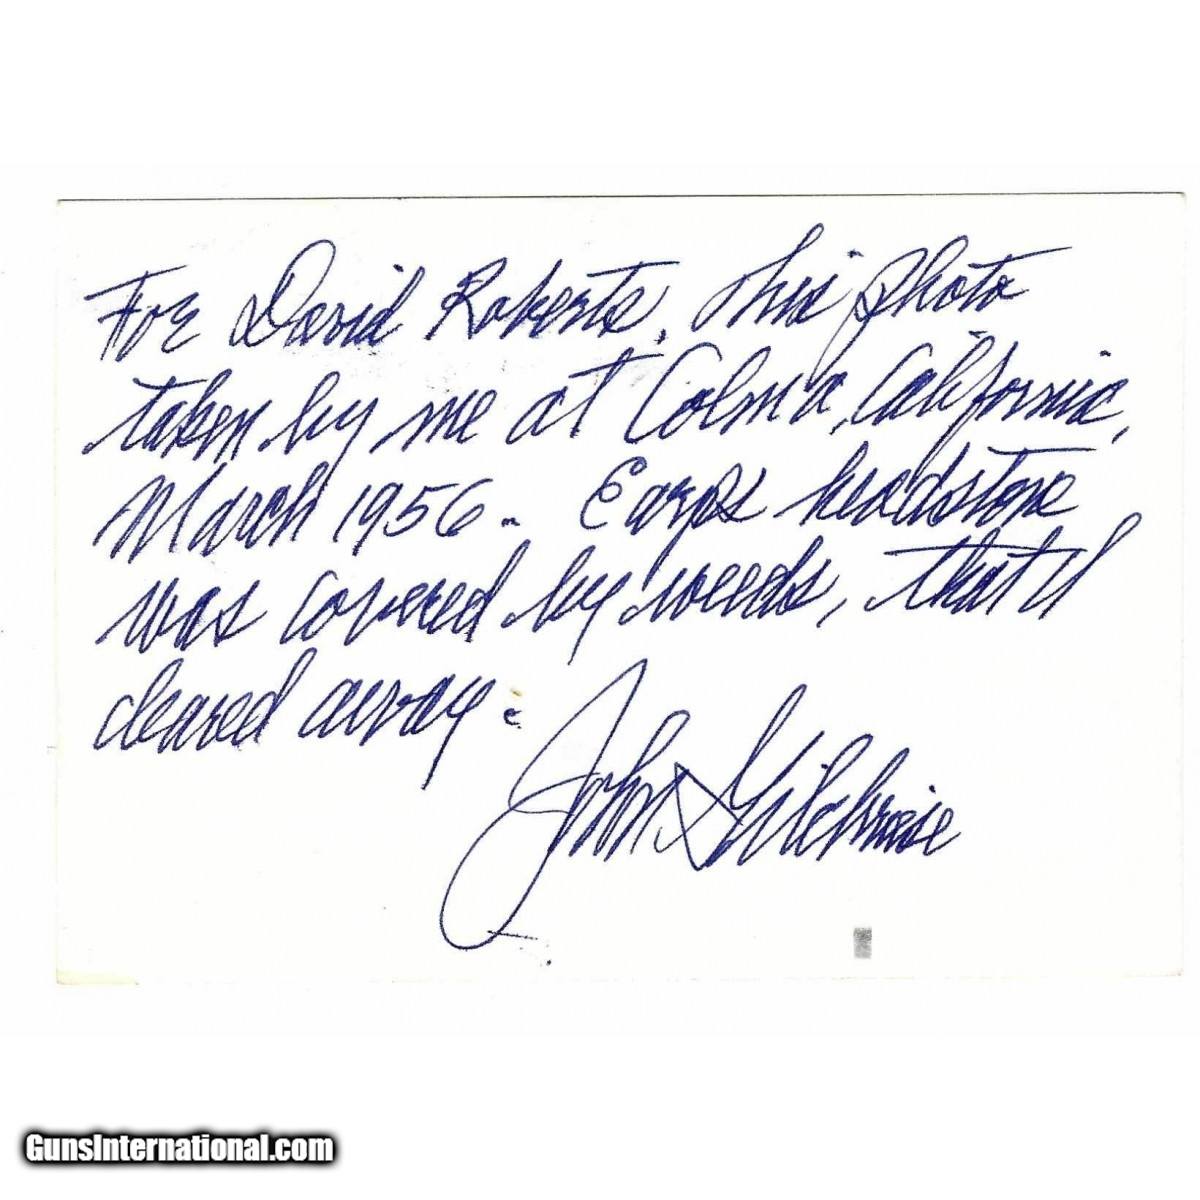 For David Roberts, this photo
taken by me at Colma, California,
March 1956. Earps headstone
was covered by weeds, that I
cleared away.
John Gilchriese
GunsInternational.com